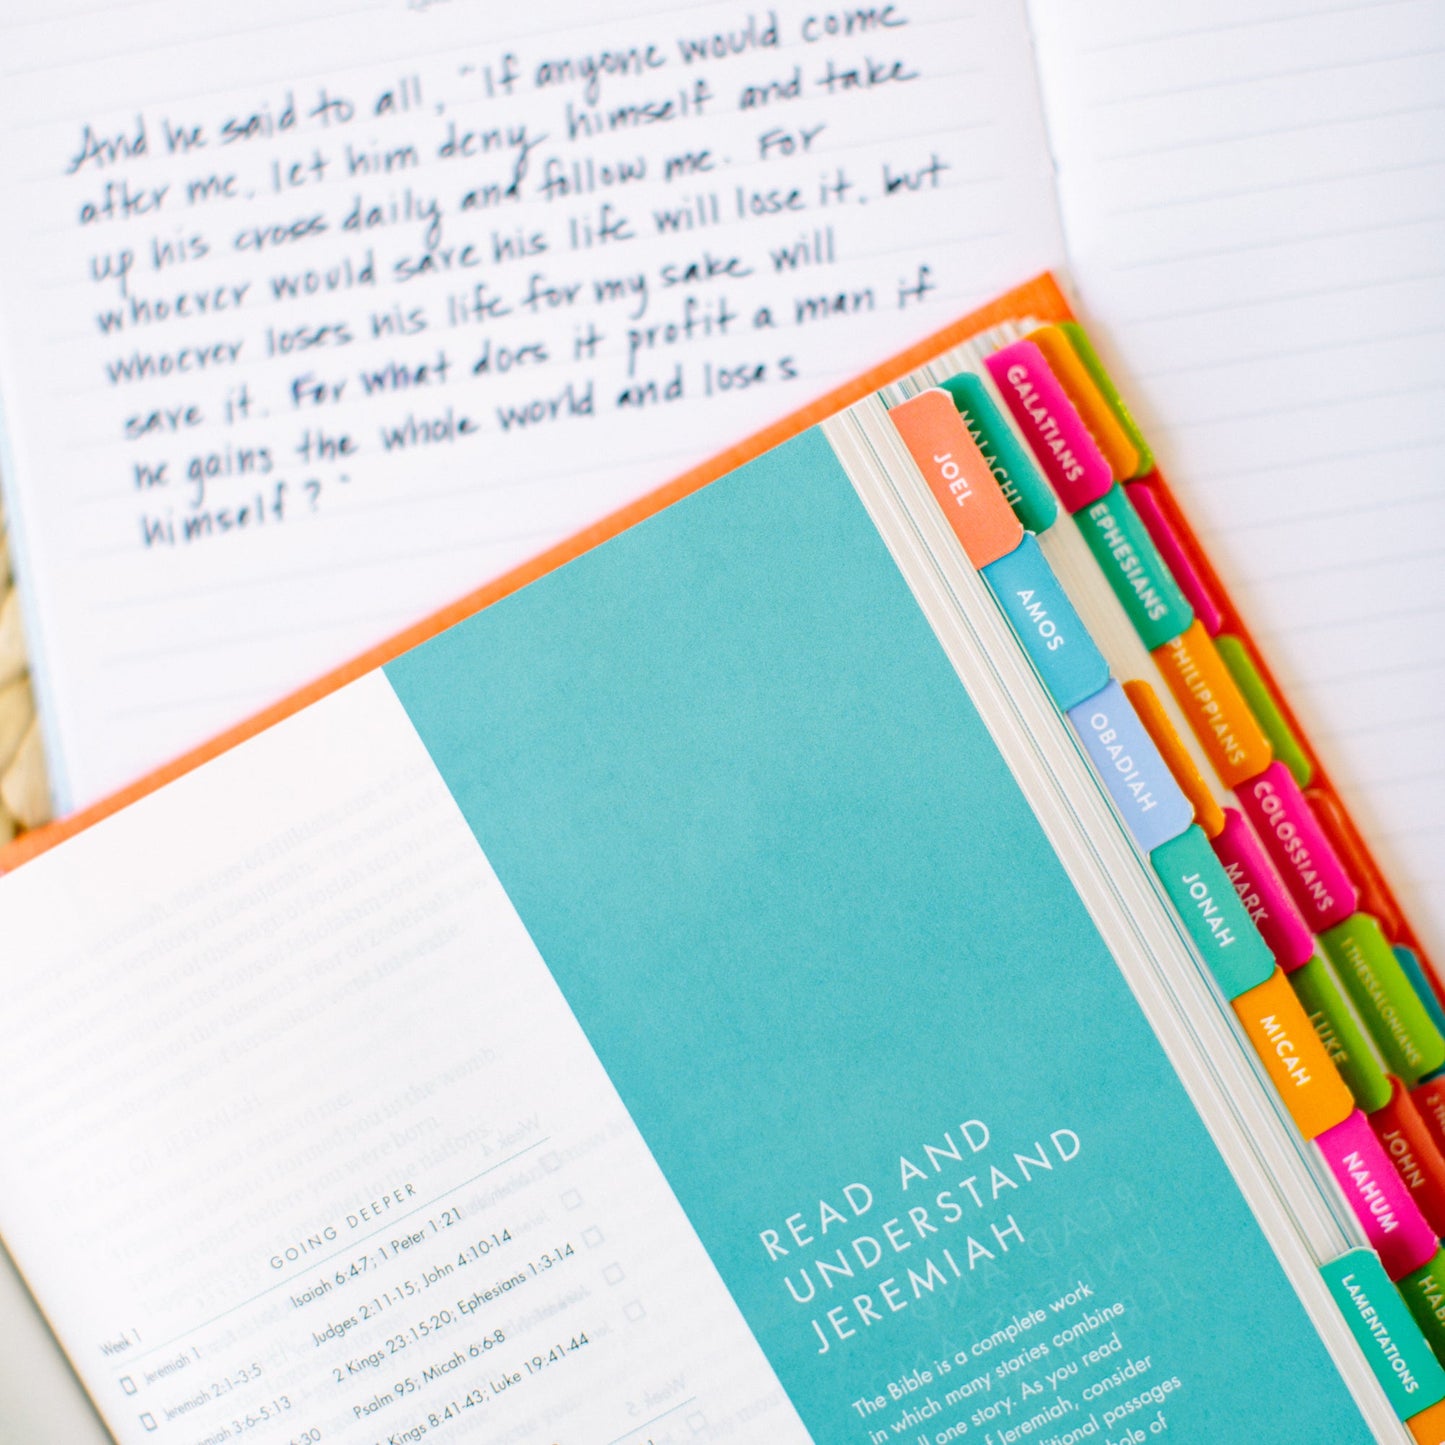 And he said to all, "If anyone would come
after me, let him deny himself and take
up his cross daily and follow me. For
whoever would save his life will lose it, but
whoever loses his life for my sake will
save it. For what does it profit a man if
he gains the whole world and loses
himself?"
JOEL
AMOS
OBADIAH
JONAH
MICAH
NAHUM
LAMENTATIONS
MALACHI
MARK
LUKE
JOHN
GALATIANS
EPHESIANS
PHILIPPIANS
COLOSSIANS
1 THESSALONIANS
READ AND
UNDERSTAND
JEREMIAH
The Bible is a complete work
in which many stories combine
one story. As you read
Jeremiah, consider
passages
of
GOING DEEPER
Week 1
Jeremiah 1 Isaiah 6:4-7; 1 Peter 1:21
Jeremiah 2:1–3:5 Judges 2:11-15; John 4:10-14
3:6–5:13 2 Kings 23:15-20; Ephesians 1:3-14
6:30 Psalm 95; Micah 6:6-8
Kings 8:41-43; Luke 19:41-44